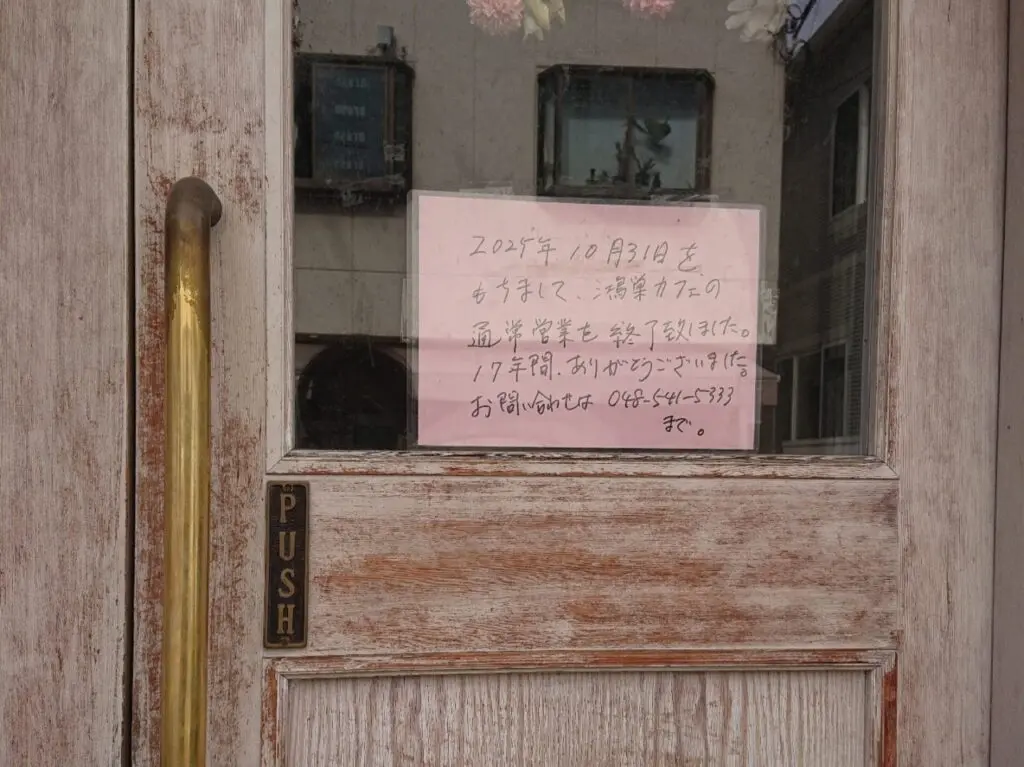 2025年 10月31日を
もちまして、鴻巣カフェの
通常営業を終了致しました。
17年間、ありがとうございました。
お問い合わせは 048-541-5333
まで。
PUSH